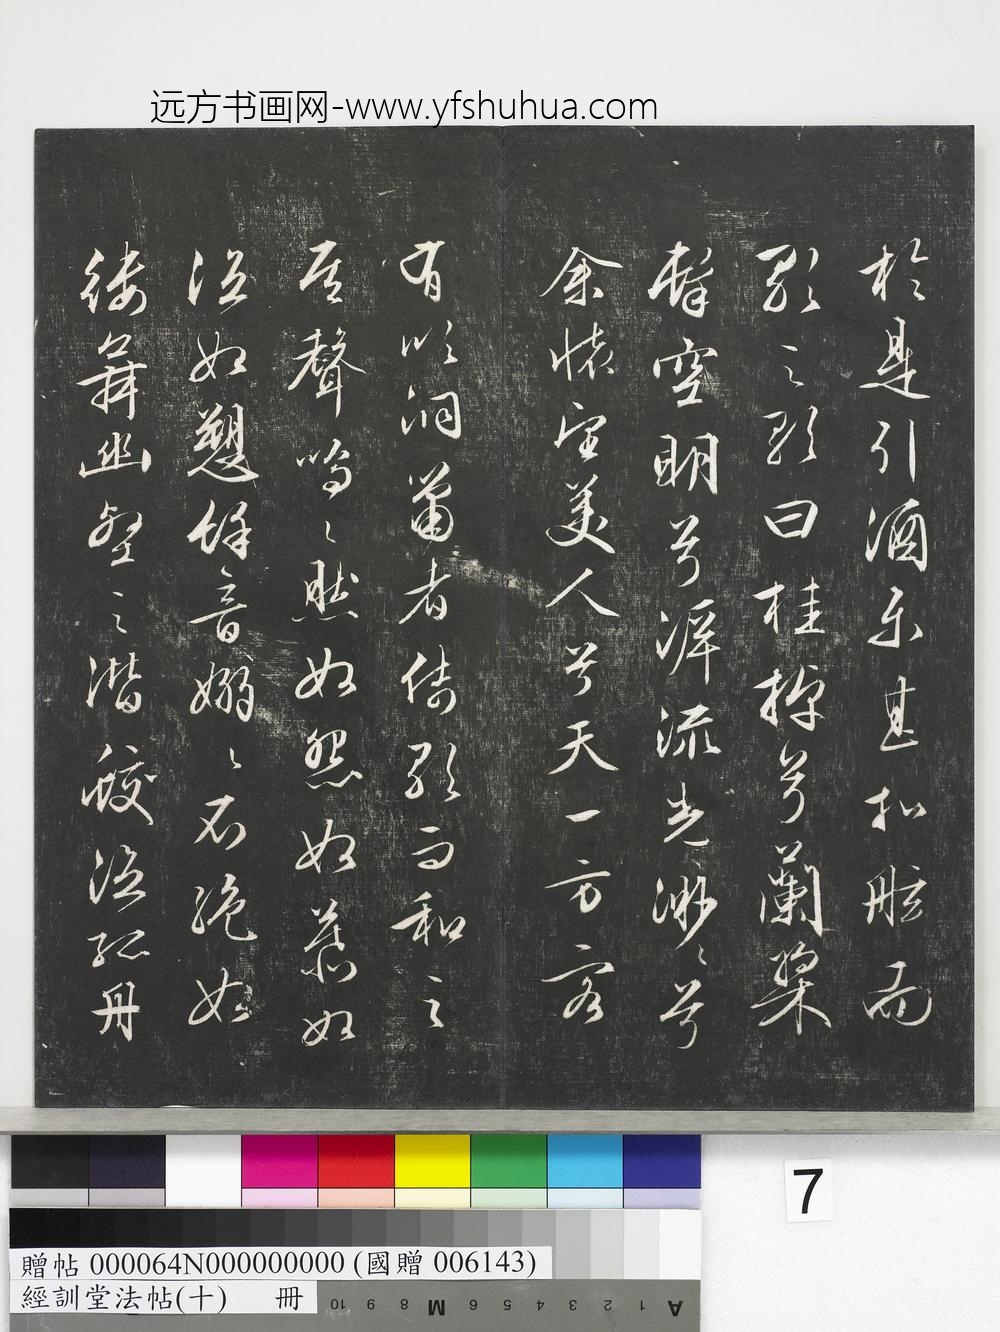 远方书画网-www.yfshuhua.com
於是引酒樂甚扣舷而
歌之歌曰桂棹兮蘭槳
擊空明兮泝流光渺々兮
余懷望美人兮天一方客
有吹洞簫者倚歌而和之
其聲嗚々然如怨如慕如
泣如愬餘音嫋々不絕如
縷舞幽壑之潛蛟泣孤舟
7
贈帖 000064N000000000 (國贈 006143)
經訓堂法帖(十) 冊
A 1 2 3 4 5 6 M 8 9 10